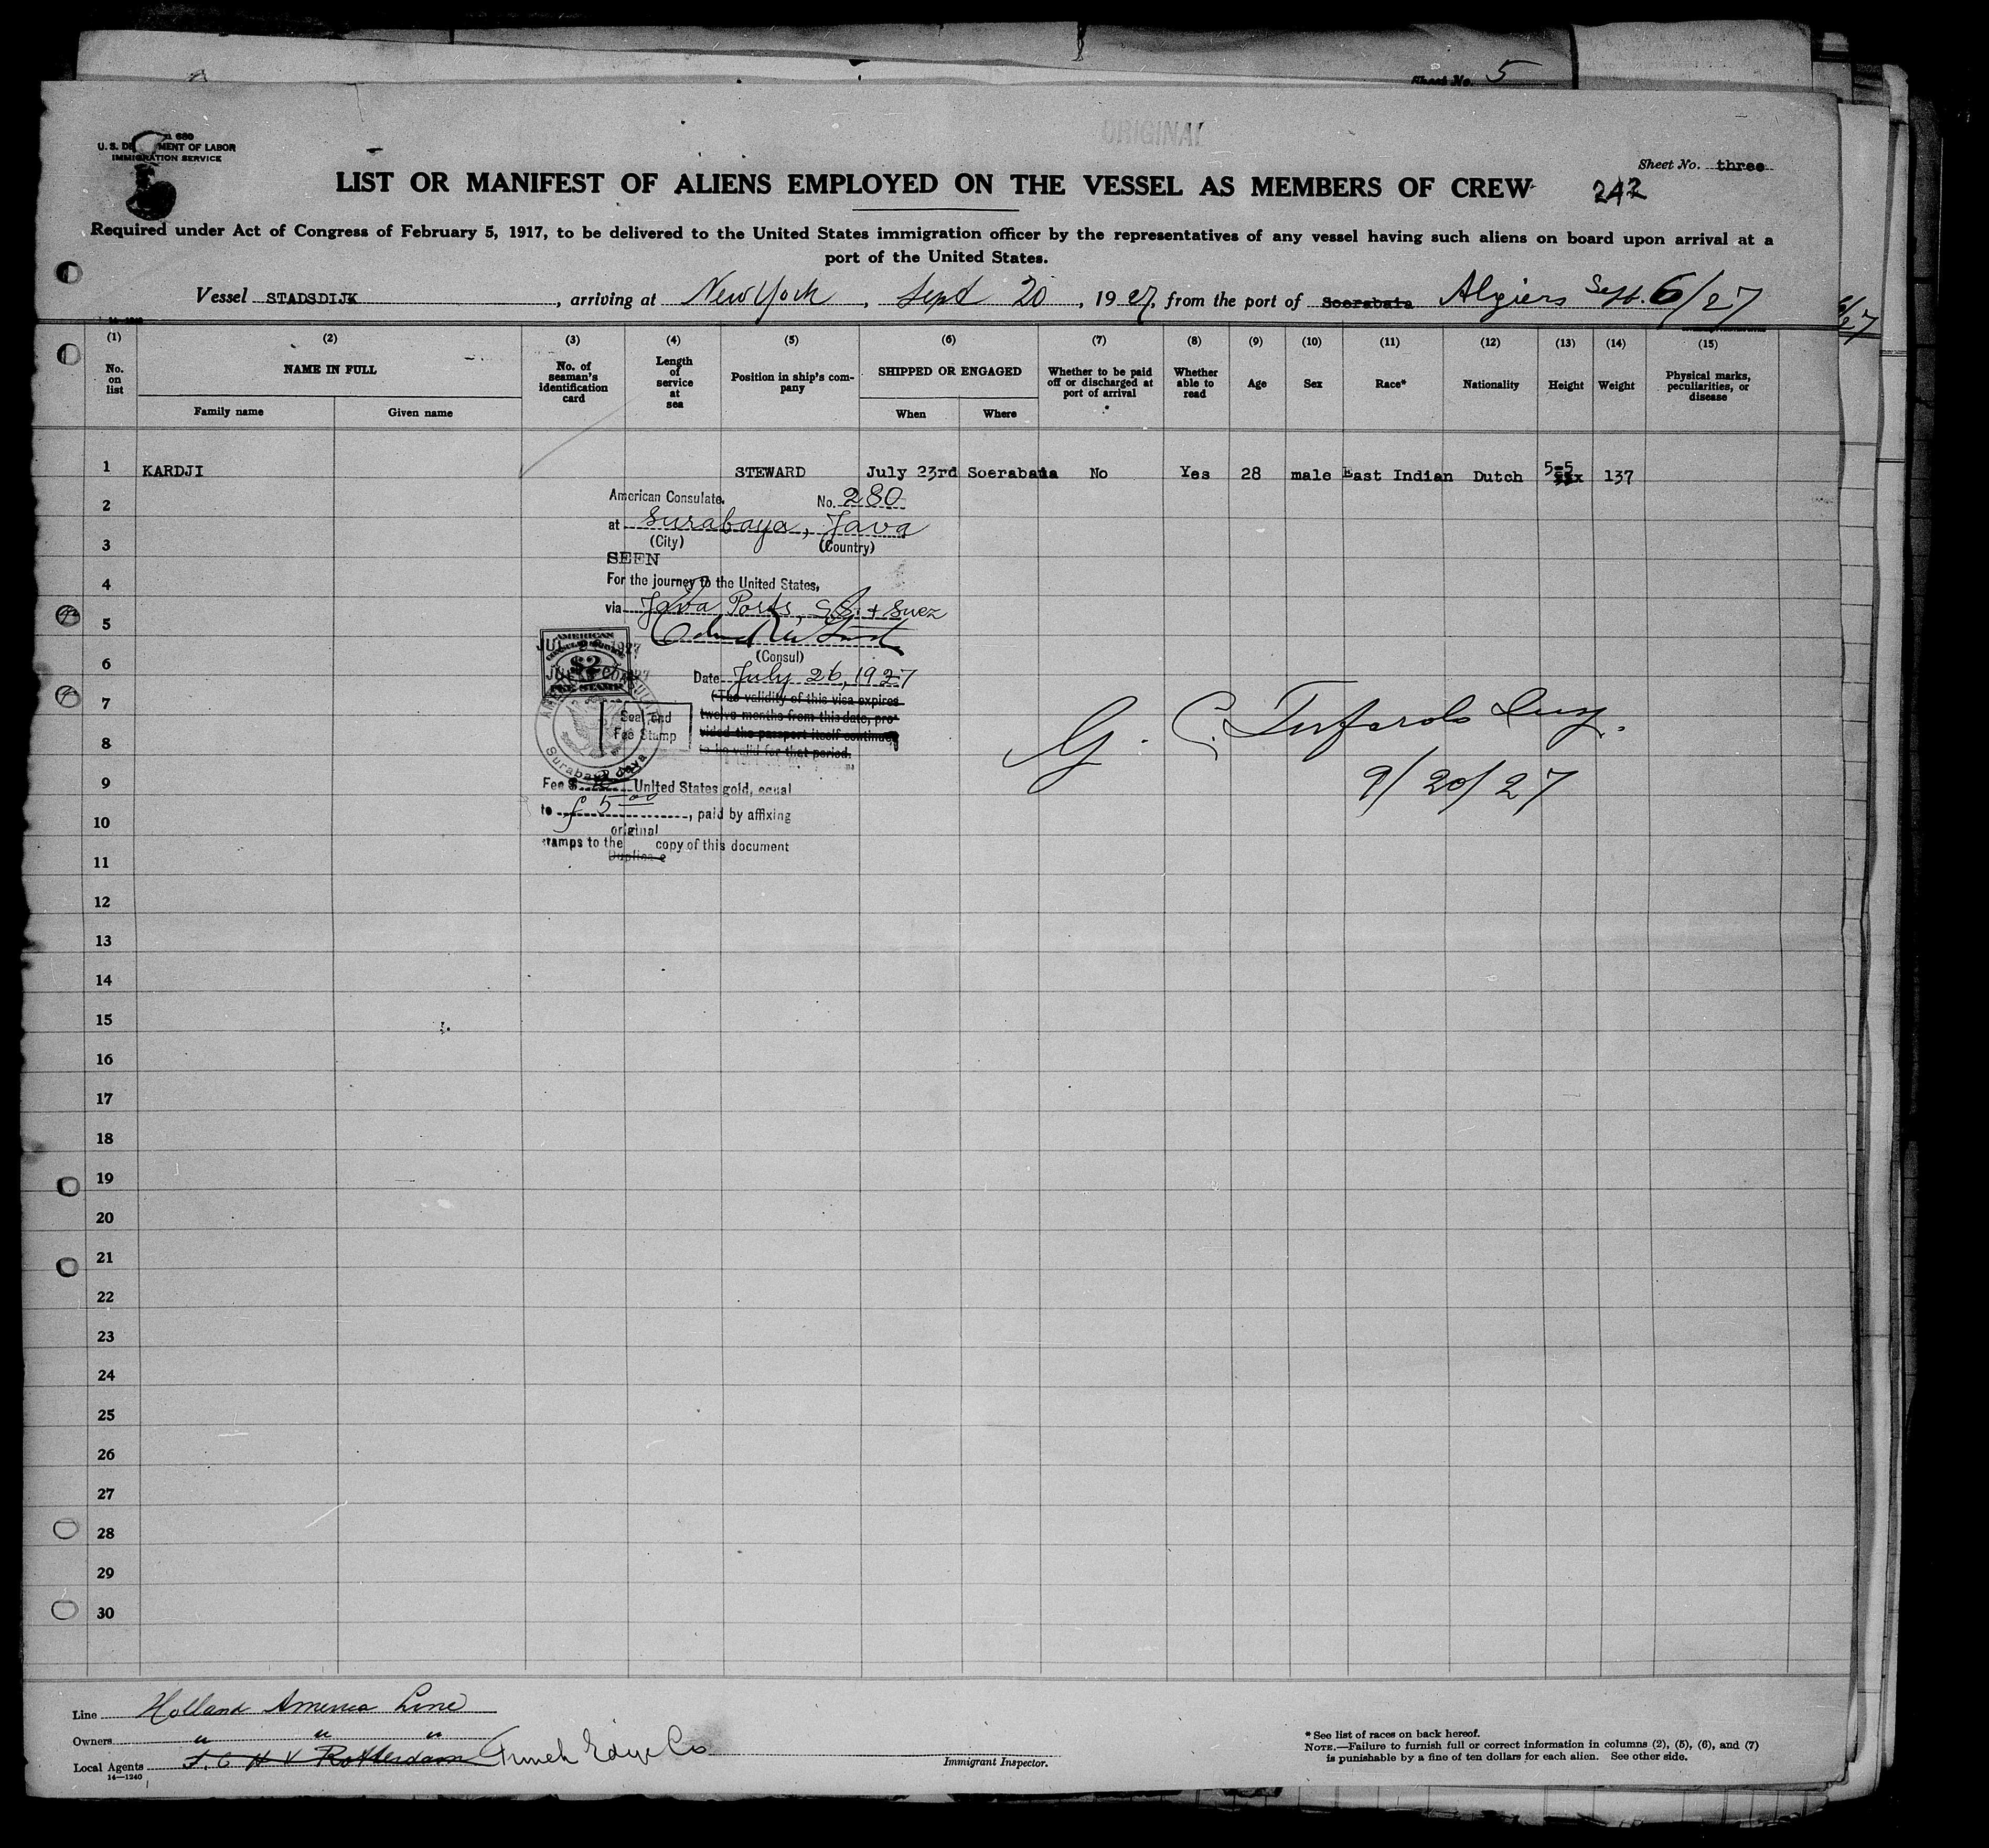 Sheet No. 5
ORIGINAL
680
U. S. DE MENT OF LABOR
IMMIGRATION SERVICE
Sheet No. three
LIST OR MANIFEST OF ALIENS EMPLOYED ON THE VESSEL AS MEMBERS OF CREW
242
Required under Act of Congress of February 5, 1917, to be delivered to the United States immigration officer by the representatives of any vessel having such aliens on board upon arrival at a
port of the United States.
Vessel STADSDIJK, arriving at New York, Sept 20, 1927, from the port of Soerabaia Algiers Sept. 6/27
(1) (2) (3) (4) (5) (6) (7) (8) (9) (10) (11) (12) (13) (14) (15)
No. on list
NAME IN FULL
Family name Given name
No. of seaman's identification card
Length of service at sea
Position in ship's company
SHIPPED OR ENGAGED
When Where
Whether to be paid off or discharged at port of arrival
Whether able to read
Age
Sex
Race*
Nationality
Height
Weight
Physical marks, peculiarities, or disease
1 KARDJI STEWARD July 23rd Soerabaia No Yes 28 male East Indian Dutch 5-5 137
American Consulate. No. 280
2
at Surabaya, Java
(City) (Country)
3
SEEN
For the journey to the United States,
4
via Java Ports, S.S. + Suez
5
(Consul)
6
AMERICAN
CONSULAR SERVICE
$2
FEE STAMP
Date July 26, 1927
(The validity of this visa expires
7
twelve months from this date, pro-
vided the passport itself continues
to be valid for that period.
Seal and
Fee Stamp
AMERICAN CONSULATE
Surabaya Java
8
G. C. Tufarolo Insp.
9/20/27
9
Fee $ United States gold, equal
to f 5.00, paid by affixing
10
original
stamps to the copy of this document
Duplicate
11
12
13
14
15
16
17
18
19
20
21
22
23
24
25
26
27
28
29
30
Line Holland America Line
Owners " " "
Local Agents Rotterdam Funch Edye Co
14—1240
Immigrant Inspector.
* See list of races on back hereof.
NOTE.—Failure to furnish full or correct information in columns (2), (5), (6), and (7)
is punishable by a fine of ten dollars for each alien. See other side.